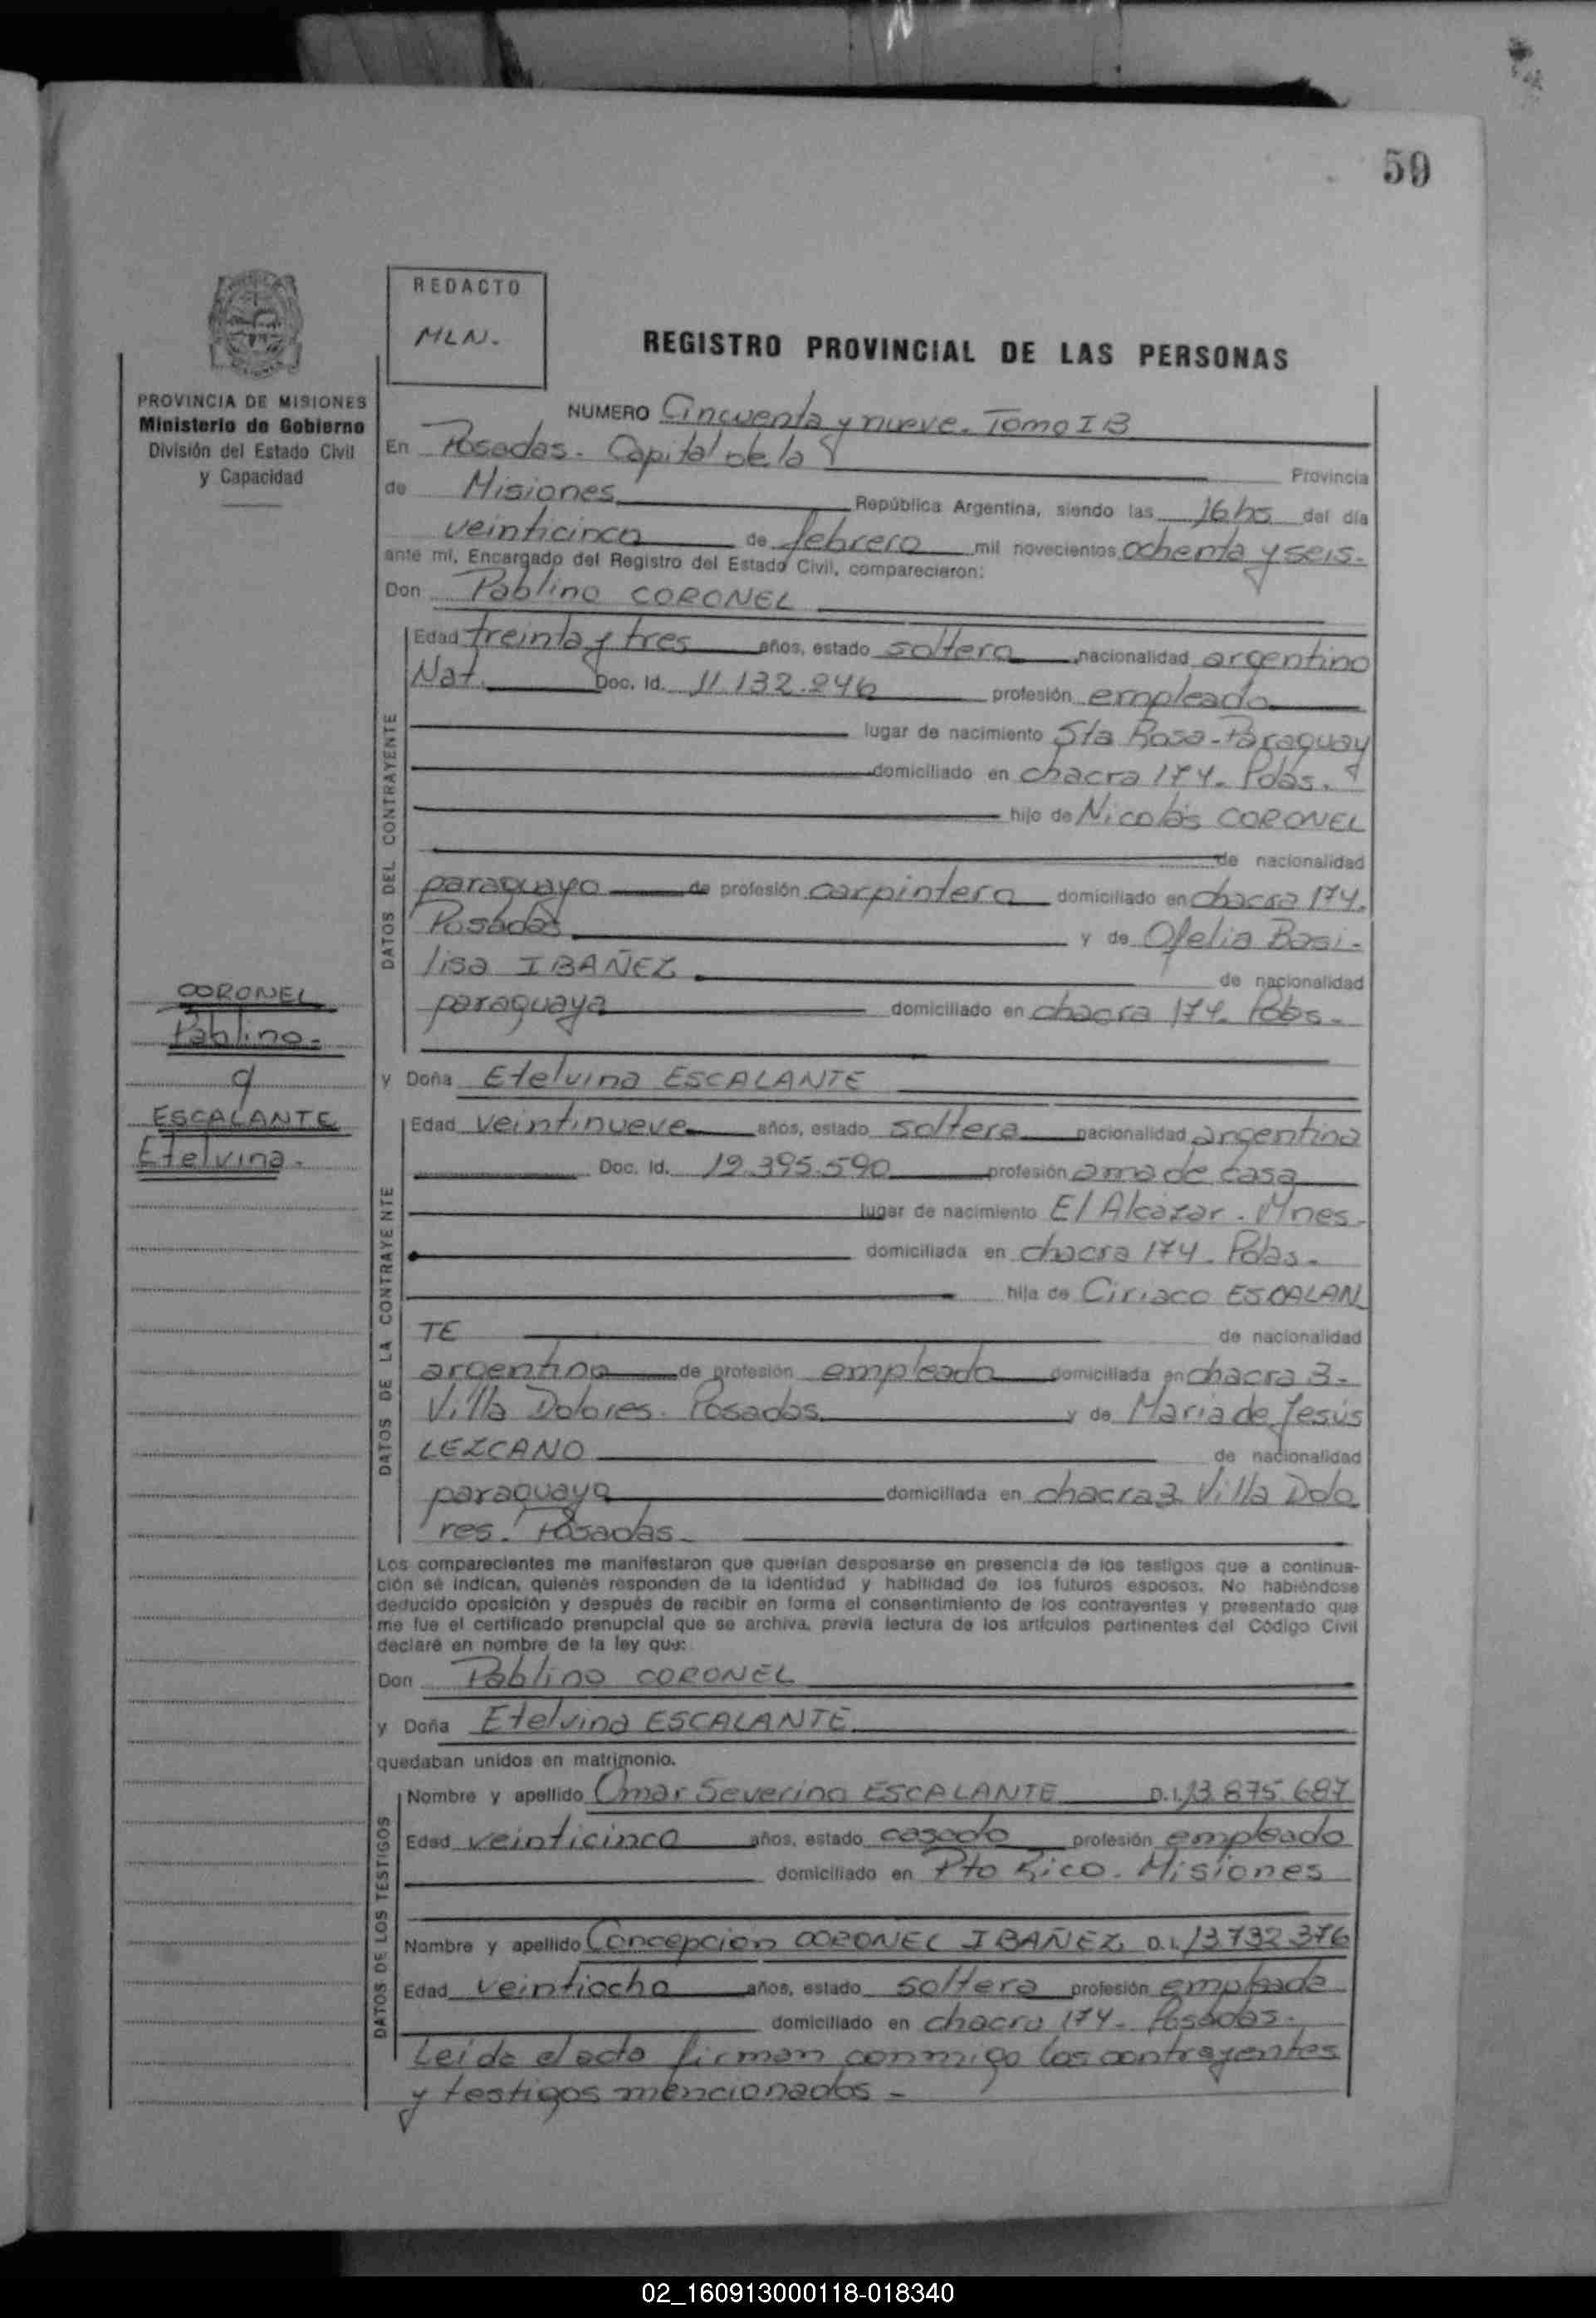 59
REDACTO
MLN.
REGISTRO PROVINCIAL DE LAS PERSONAS
PROVINCIA DE MISIONES
Ministerio de Gobierno
División del Estado Civil
y Capacidad
NUMERO Cincuenta y nueve. Tomo I B
En Posadas. Capital de la Provincia
de Misiones República Argentina, siendo las 16 hs del día
veinticinco de febrero mil novecientos ochenta y seis.
ante mí, Encargado del Registro del Estado Civil, comparecieron:
Don Pablino CORONEL
DATOS DEL CONTRAYENTE
Edad treinta y tres años, estado soltero nacionalidad argentino
Nat. Doc. Id. 11.132.246 profesión empleado
lugar de nacimiento Sta Rosa-Paraguay
domiciliado en chacra 174. Pdas.
hijo de Nicolás CORONEL
de nacionalidad
paraguayo de profesión carpintero domiciliado en chacra 174.
Posadas y de Ofelia Basi-
lisa IBAÑEZ de nacionalidad
paraguaya domiciliado en chacra 174. Pdas.
CORONEL
Pablino-
y
ESCALANTE
Etelvina.
y Doña Etelvina ESCALANTE
DATOS DE LA CONTRAYENTE
Edad veintinueve años, estado soltera nacionalidad argentina
Doc. Id. 12.395.590 profesión ama de casa
lugar de nacimiento El Alcázar. Mnes.
domiciliada en chacra 174. Pdas.
hija de Ciriaco ESCALAN
TE de nacionalidad
argentino de profesión empleado domiciliada en chacra 3-
Villa Dolores. Posadas y de Maria de Jesús
LEZCANO de nacionalidad
paraguaya domiciliada en chacra 3 Villa Dolo
res. Posadas-
Los comparecientes me manifestaron que querían desposarse en presencia de los testigos que a continua-
ción se indican, quienes responden de la identidad y habilidad de los futuros esposos. No habiéndose
deducido oposición y después de recibir en forma el consentimiento de los contrayentes y presentado que
me fue el certificado prenupcial que se archiva, previa lectura de los artículos pertinentes del Código Civil
declaré en nombre de la ley que:
Don Pablino CORONEL
y Doña Etelvina ESCALANTE
quedaban unidos en matrimonio.
DATOS DE LOS TESTIGOS
Nombre y apellido Omar Severino ESCALANTE D.I. 13.875.687
Edad veinticinco años, estado casado profesión empleado
domiciliado en Pto Rico. Misiones
Nombre y apellido Concepcion CORONEL IBAÑEZ D.I. 13.732.376
Edad veintiocho años, estado soltera profesión empleada
domiciliado en chacra 174- Posadas.
Leida el acta firman conmigo los contrayentes
y testigos mencionados -
02_160913000118-018340